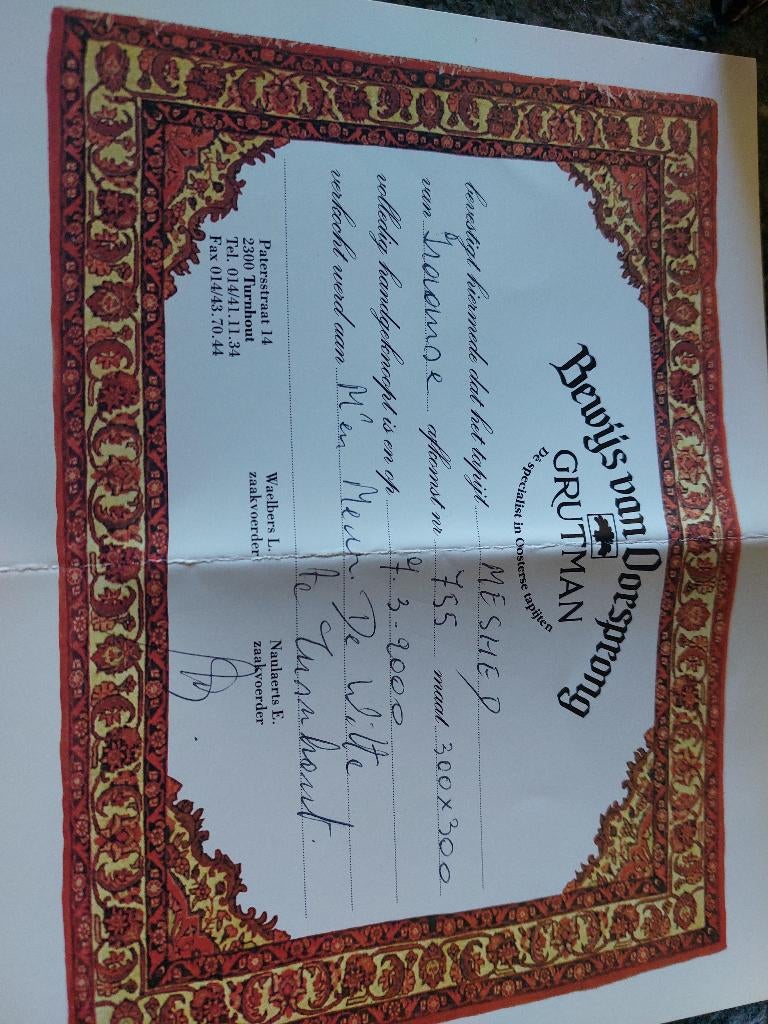 Bewijs van Oorsprong
GRUTMAN
De specialist in Oosterse tapijten
bevestigt hiermede dat het tapijt MESHED
van Iraanse afkomst nr. 755 maat 300x300
volledig handgeknoopt is en op 7.3-2000
verkocht werd aan Mr en Mevr. De Witte
te Turnhout.
Patersstraat 14
2300 Turnhout
Tel. 014/41.11.34
Fax 014/43.70.44
Waelbers L.
zaakvoerder
Naulaerts E.
zaakvoerder